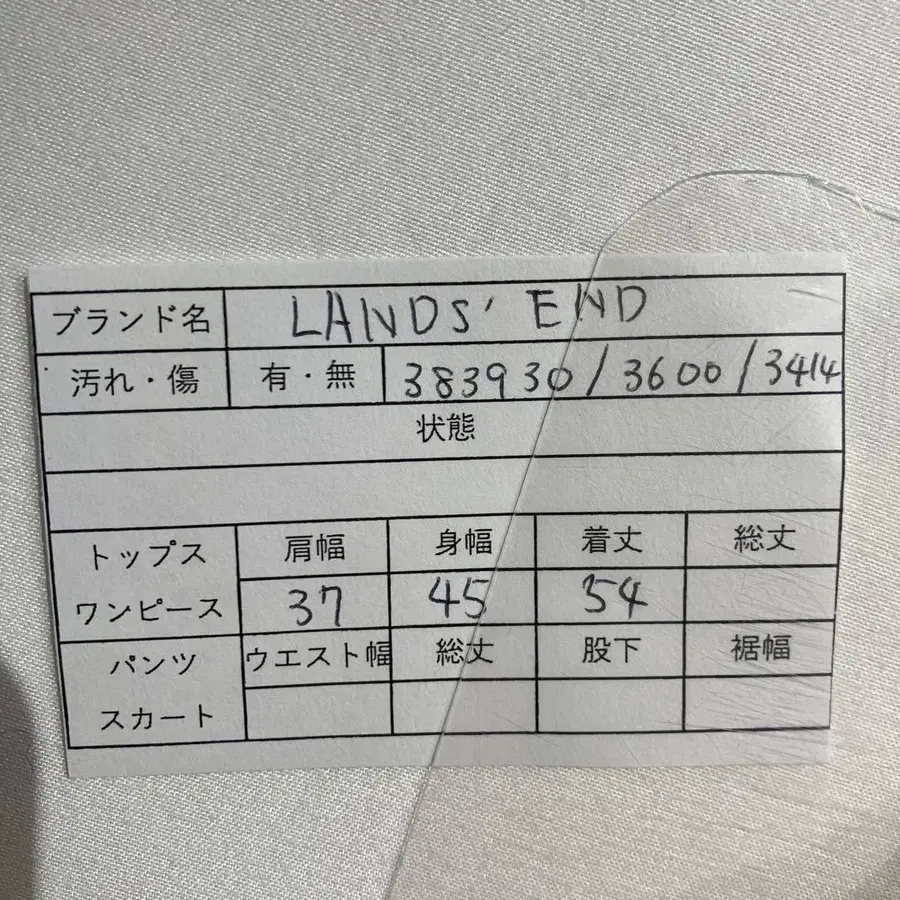 ブランド名 LANDS' END
汚れ・傷 有・無 383930/3600/3414
状態
トップス 肩幅 身幅 着丈 総丈
ワンピース 37 45 54
パンツ ウエスト幅 総丈 股下 裾幅
スカート